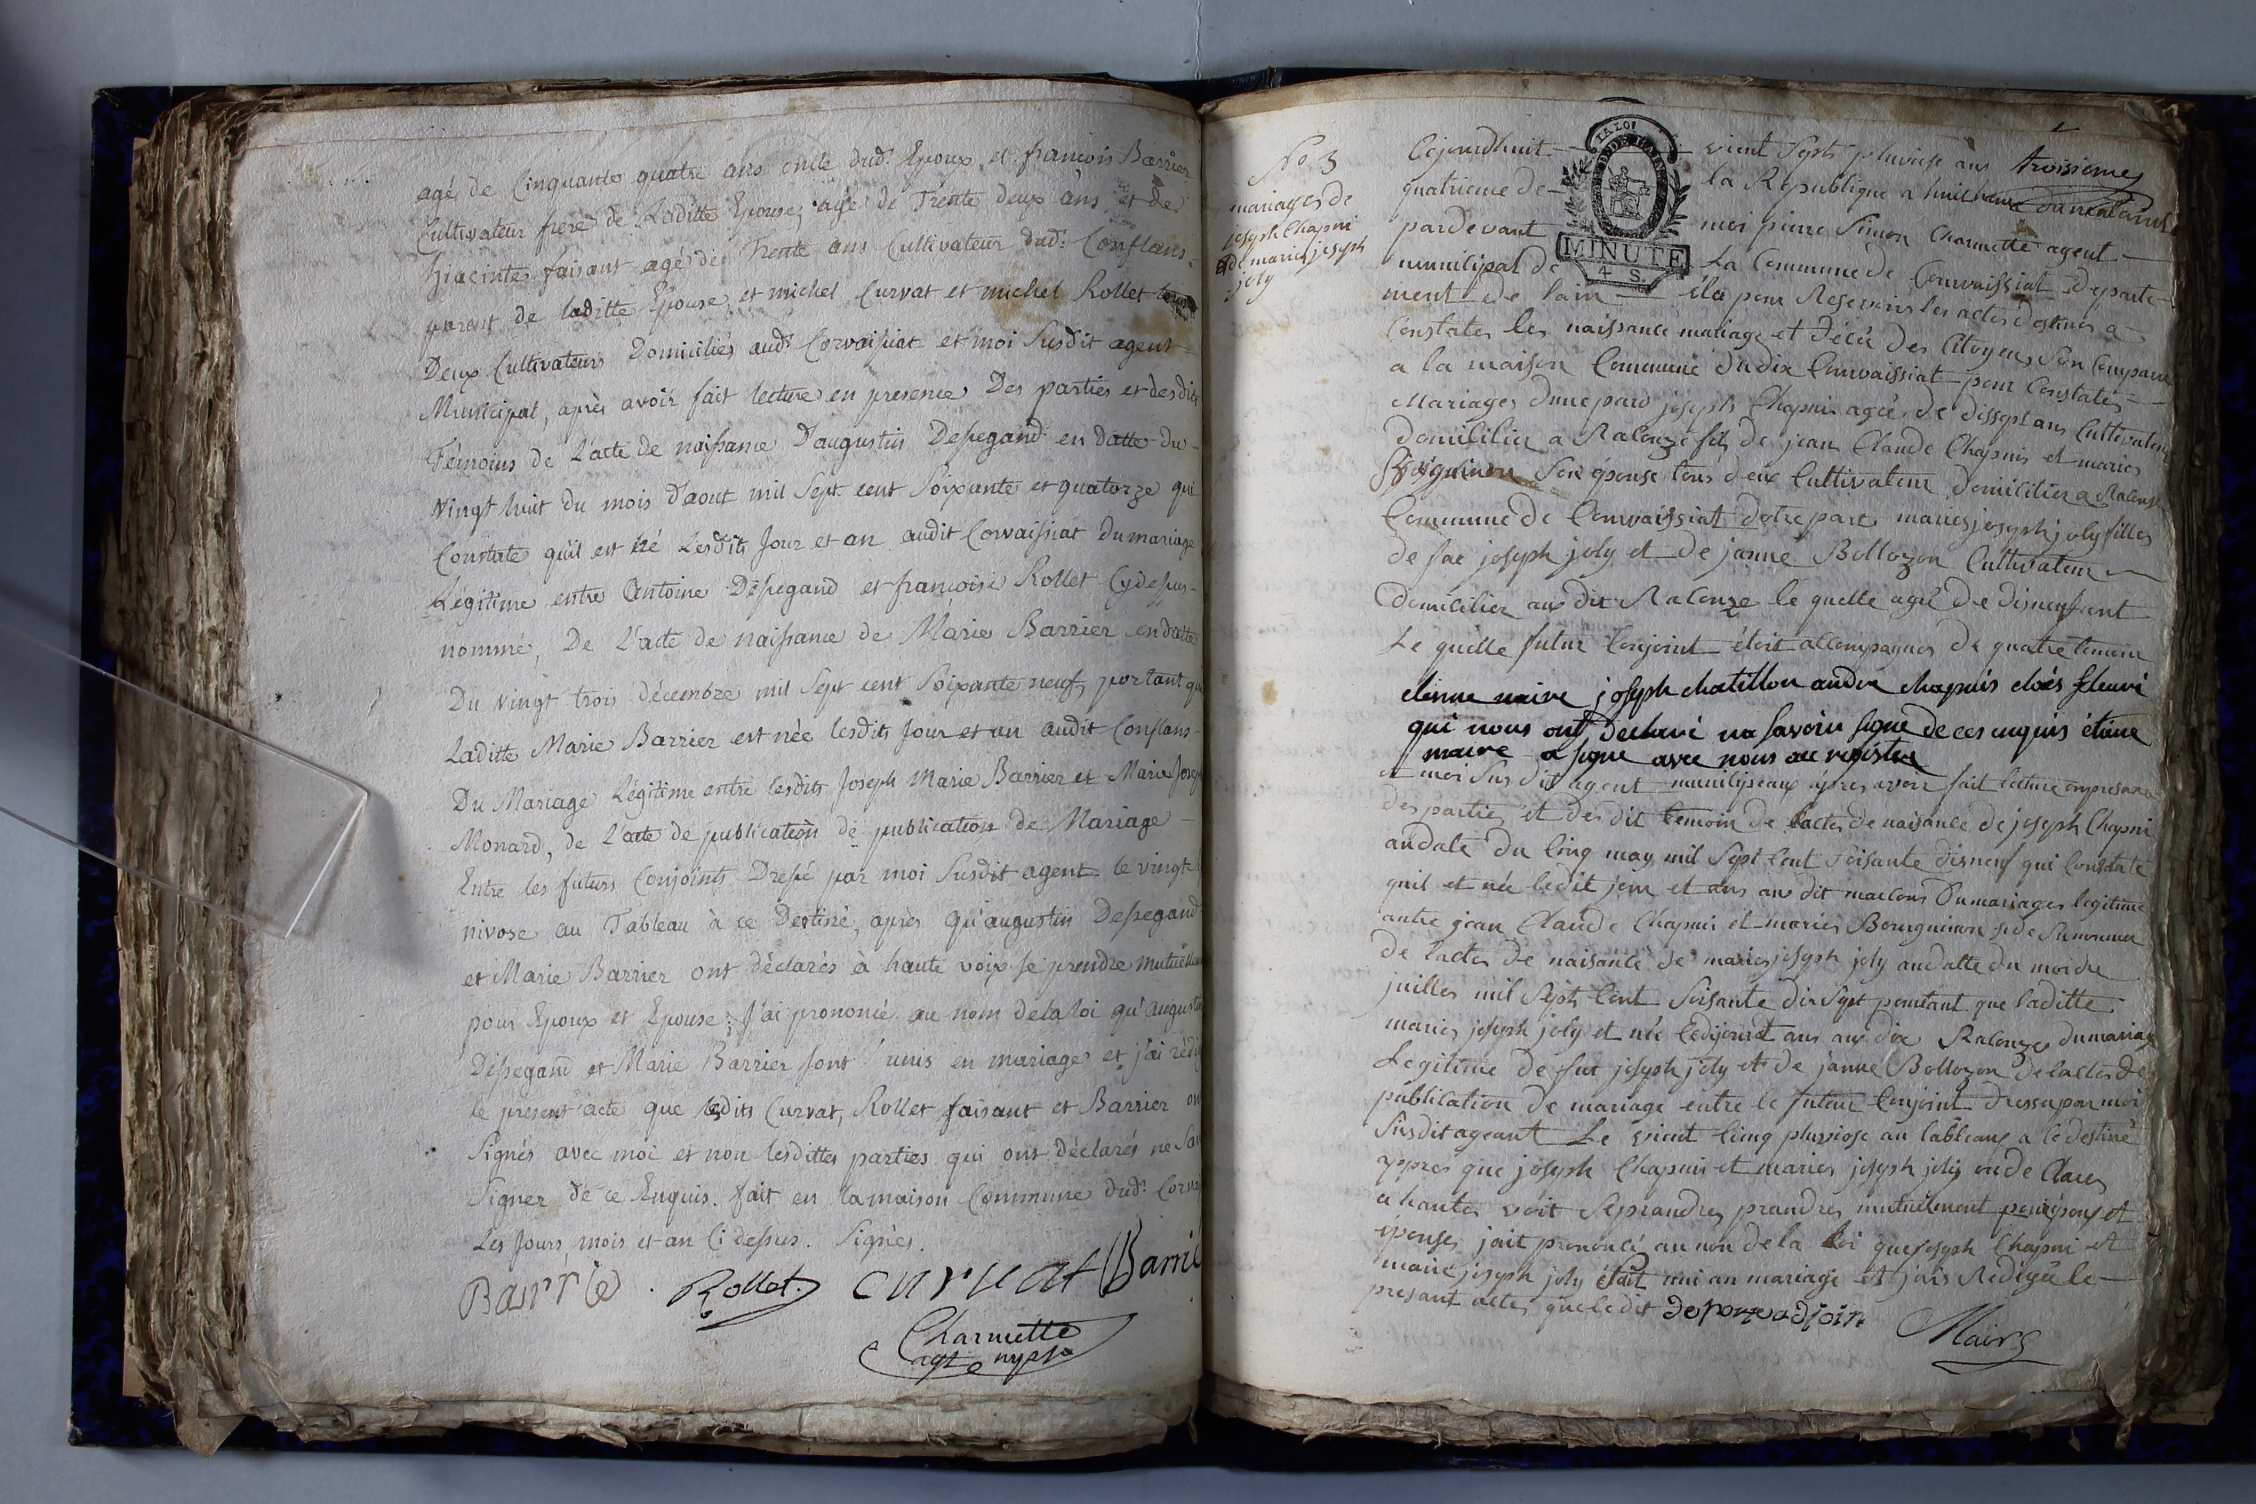 agé de Cinquante quatre ans oncle dud. Epoux, et francois Barrier
Cultivateur frere de Laditte Epouse, agé de Trente deux ans et de
hiacinte faisant agé de Trente ans Cultivateur dud. Conflans
parent de laditte Epouse, et michel Curvat et michel Rollet
Deux Cultivateurs Domiciliés aud. Corvaissiat et moi Susdit agent
Municipal, après avoir fait lecture en presence Des parties et desdits
Témoins de L'acte de naissance D'augustin Depegand en datte du
vingt huit du mois d'aout mil Sept cent Soixante et quatorze qui
Constate qu'il est né Lesdits Jour et an audit Corvaissiat Du mariage
Légitime entre Antoine Depegand et francoise Rollet Cy dessus
nommé, De L'acte de naissance de Marie Barrier en datte
Du vingt trois décembre mil Sept cent Soixante neuf, portant que
Laditte Marie Barrier est née lesdits Jour et an audit Conflans
Du Mariage Légitime entre lesdits Joseph Marie Barrier et Marie Joseph
Monard, de L'acte de publication de publication de Mariage
Entre les futurs Conjoints Dressé par moi Susdit agent le vingt
nivose au Tableau à ce Destiné, après qu'augustin Depegand
et Marie Barrier ont déclarés à haute voix se prendre mutuellement
pour Epoux et Epouse; J'ai prononcé au nom de la loi qu'augustin
Depegand et Marie Barrier sont unis en mariage et j'ai rédigé
le present acte que lesdits Curvat, Rollet faisant et Barrier ont
Signés avec moi et non lesdittes parties qui ont déclarés ne Savoir
Signer de ce Enquis. fait en la maison Commune dud. Corvaissiat
Les Jours, mois et an Ci dessus. Signés.
Barrie Rollet. curvat Barrie
Charmette
agt
No. 3
mariages de
joseph Chapui
et de marie joseph
joly
LA LOI
MINUTE
4 S.
Cejourdhuit vient Sept pluviose ans troisiemes
quatrieme de la Republique a huit heure
pardevant moi pierre Simon Charmette agent
municipal de La Commune de Corvaissiat departe
ment de lain élu pour Resevoir les actes destinés a
Constater les naissance mariage et décés des Citoyens Son Comparu
a la maison Commune dudix Courvaissiat pour Constater
Mariages dune pard joseph Chapui agée de dissept ans Cultivateur
domicilier a Ralonze fils de jean Claude Chapuis et maries
Son épouse tous deux Cultivateur domicilier a Ralonze
Commune de Corvaissiat dotre part maries joseph joly filles
de fue joseph joly et de janne Bollozon Cultivateur
domicilier au dit Ralonze le quelle agé de disneuf ant
Le quelle futur Conjoint étoit accompagner de quatre temoin
etienne maire joseph chatillon andre chapuis fleuri
qui nous ont declaré ne savoir signe de ces enquis étiene
maire a signe avec nous au registre
et moi Susdit agent apres avoir fait lecture en presance
des parties et des dit temoin de lactes de naisance de joseph Chapui
andate du Cinq may mil Sept Cent Soisante disneuf qui Constate
quil et née ledit jour et ans au dit Dumariages legitime
antre jean Claude Chapui et maries
de lactes de naisance de maries joseph joly andatte du moi de
juilles mil Sept Cent Soisante dix Sept pourtant que laditte
maries joseph joly et née ledijour et ans au dix Ralonze dumariage
Legitime de fut joseph joly et de janne Bollozon de lactes de
publication de mariage entre le futeur Conjoint dresse par moi
Susdit ageant Le vient Cinq pluviose au tableaux a Ce destiné
appres que joseph Chapuis et maries joseph joly
a hautes voit Seprandres prandres mutuelment pour épous et
épouse, jait prononcé au non de la loi que joseph Chapui et
marie joseph joly était uni an mariage et jais Redigé le
presant actes que ledit
Maire